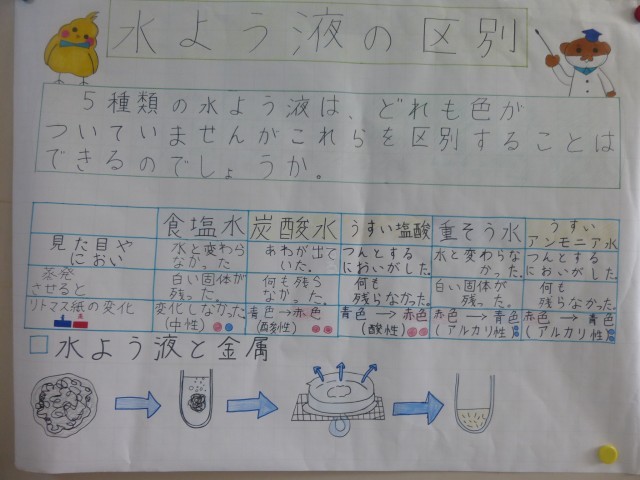 水よう液の区別
5種類の水よう液は、どれも色が
ついていませんがこれらを区別することは
できるのでしょうか。
食塩水 炭酸水 うすい塩酸 重そう水 うすいアンモニア水
見た目やにおい 水と変わらなかった あわが出ていた。 つんとするにおいがした。 水と変わらなかった。 つんとするにおいがした。
蒸発させると 白い固体が残った。 何も残らなかった。 何も残らなかった。 白い固体が残った。 何も残らなかった。
リトマス紙の変化 変化しなかった(中性) 青色→赤色(酸性) 青色→赤色(酸性) 赤色→青色(アルカリ性) 赤色→青色(アルカリ性)
□水よう液と金属